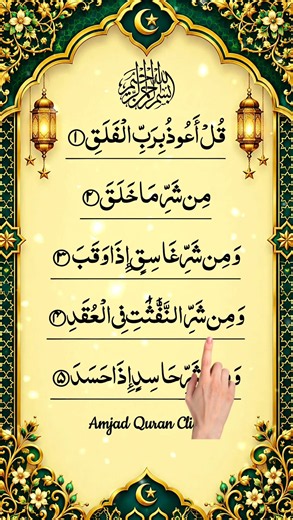 بسم الله الرحمن الرحيم
قُلْ أَعُوذُ بِرَبِّ الْفَلَقِ ۝۱
مِن شَرِّ مَا خَلَقَ ۝۲
وَمِن شَرِّ غَاسِقٍ إِذَا وَقَبَ ۝۳
وَمِن شَرِّ النَّفّٰثٰتِ فِى الْعُقَدِ ۝۴
شَرِّ حَاسِدٍ إِذَا حَسَدَ ۝۵
Amjad Quran Cli